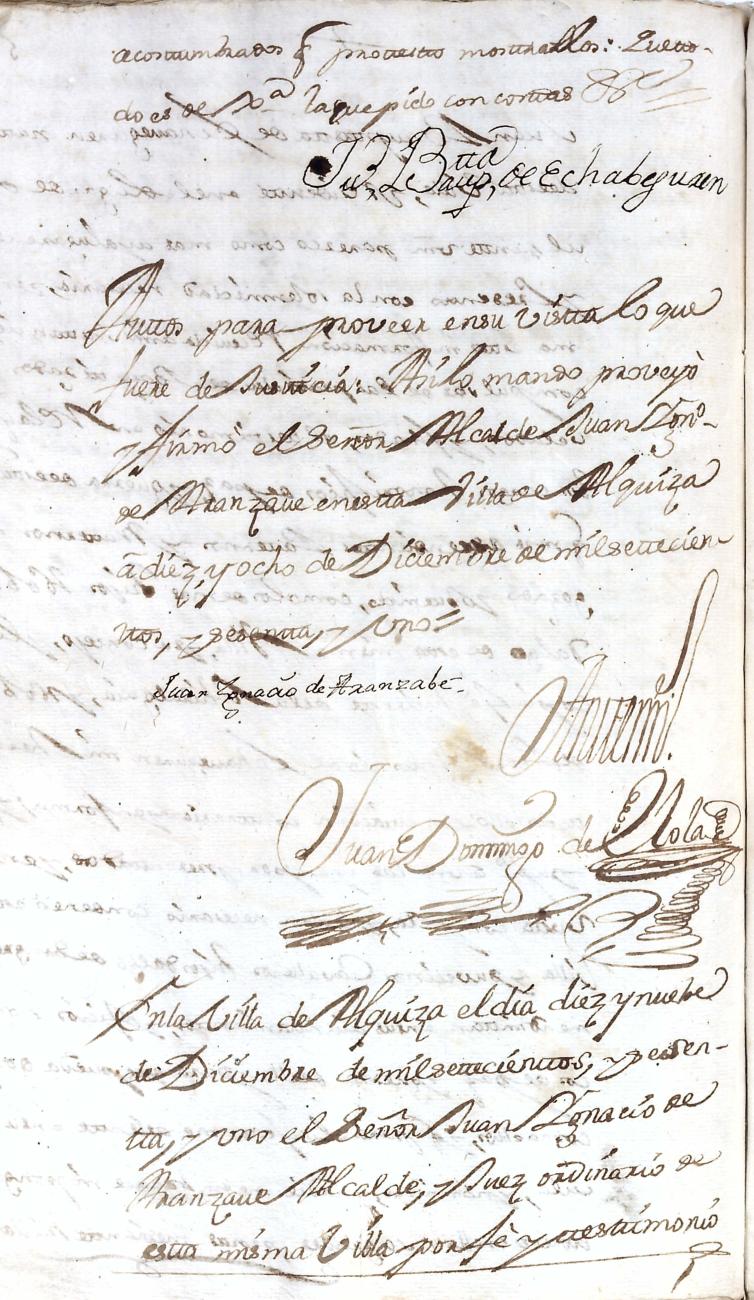 acostumbrados q protesto mostrallos: Que to-
do es de Xª la que pido con costas &ª
Juº Bauptta de Echabeguren
Auttos, para proveer en su vistta lo que
fuere de Justticia: Asi lo mando proveyò
y firmò el Señor Alcalde Juan Ignº
de Aranzave en estta Villa de Alquiza
â diez y ocho de Diciembre de mil settecien-
ttos, y sesentta, y uno=
Juan Ignacio de Aranzabe-
Antemi
Juan Domingo de Llola
En la Villa de Alquiza el dia diez y nuebe
de Diciembre de mil settecienttos, y sesen-
tta, y uno el Señor Juan Ignacio de
Aranzave Alcalde, y Juez ordinario de
estta misma Villa por fè y testtimonio